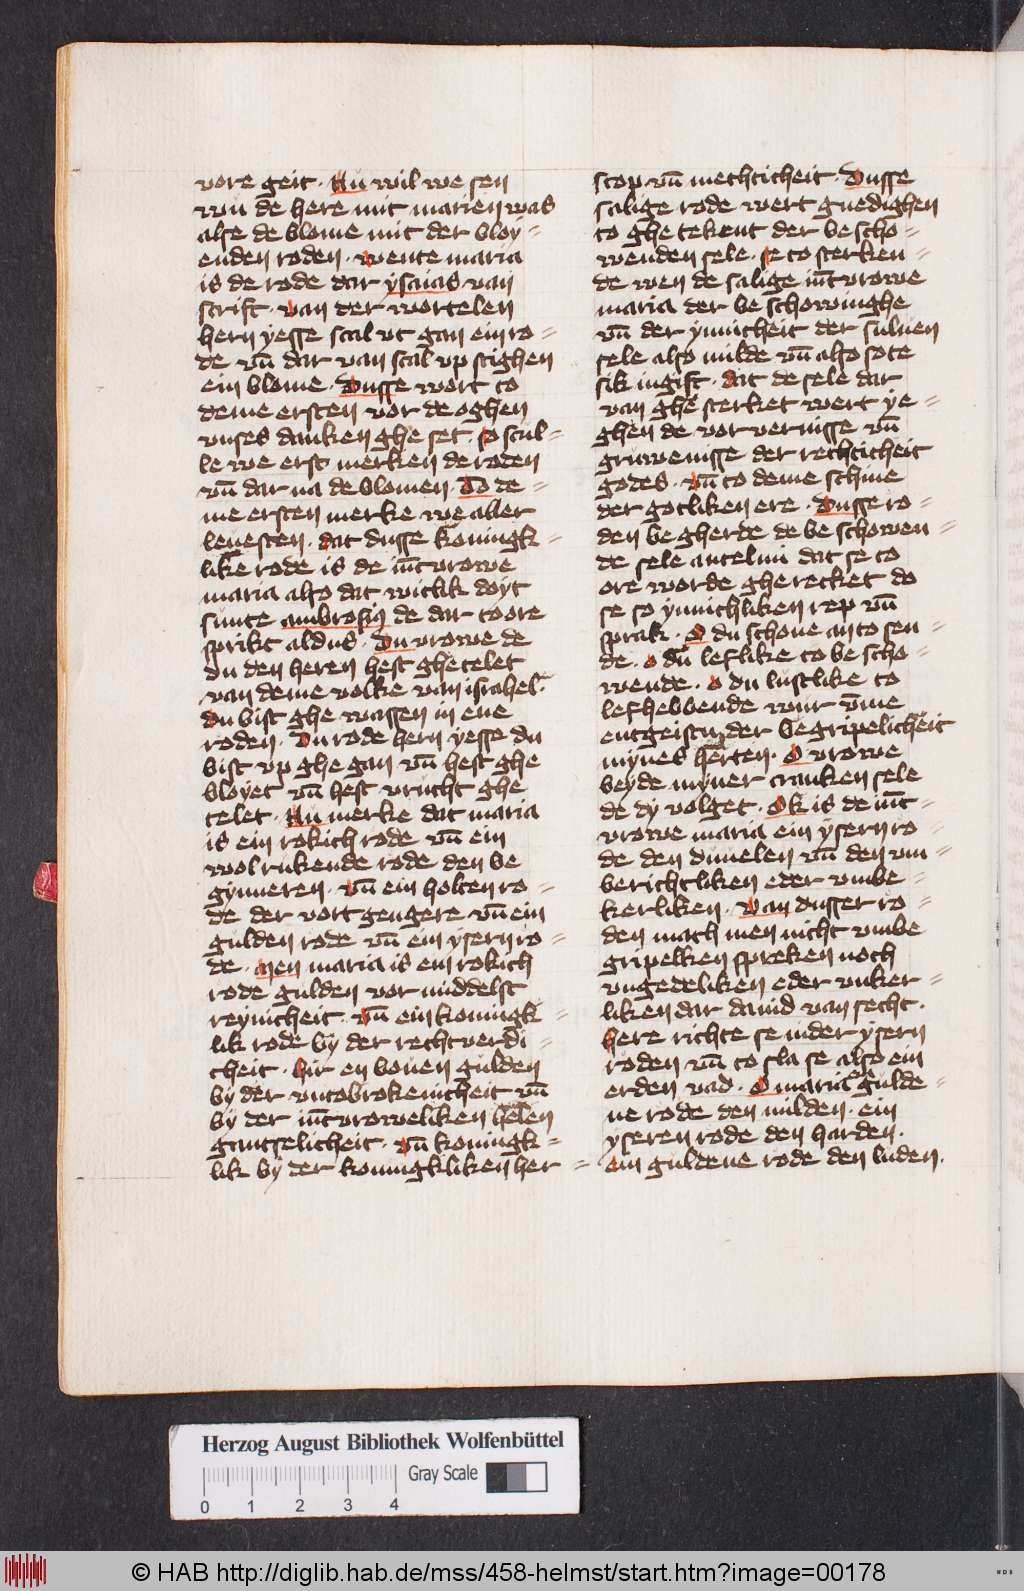 vore geit · Nu wil we sen
wu de here mit marien was
alse de blome mit der bloÿ=
enden roden · wente maria
is de rode dar ÿsaias van
scrift · van der wortelen
hern ÿesse scal vt gan ein ro=
de vn̄ dar van scal vp stighen
ein blome · Dusse wort to
deme ersten vor de oghen
vnses danken ghe set · so scul=
le we erst merken de roden
vn̄ dar na de blomen · To de=
me ersten merke we aller
leuesten · dat dusse koningk=
like rode is de iūcvrowe
maria also dat witlik doÿt
sunte ambrosiꝯ de dar to ore
sprikt aldus · Du vrowe de
du den heren hest ghe telet
van deme volke van israhel ·
du bist ghe wassen in ene
roden · Du rode hern ÿesse du
bist vp ghe gan vn̄ hest ghe
bloÿet vn̄ hest vrucht ghe
telet · Nu merke dat maria
is ein rokich rode vn̄ ein
wol rukende rode den be
gÿnneren · vn̄ ein holten ro=
de der vort gengere vn̄ ein
gulden rode vn̄ ein ÿsern ro=
de · Men maria is ein rokich
rode gulden vor middelst
reÿnicheit · vn̄ ein koningk=
lik rode bÿ der rechtverdi=
cheit · hir en bouen gulden
bÿ der vntobrokenicheit vn̄
bÿ der iūcvroweliken helen
gantzelicheit · vn̄ koningk=
lik bÿ der koningkliken her=
scop vn̄ mechticheit · Dusse
salige rode wert gnedighen
to ghe tekent der be scho=
wenden sele · se to sterken=
de wen de salige iūcvrowe
maria der be schowinghe
vn̄ der ÿnnicheit der suluen
sele also milde vn̄ also sote
sik ingift · dat de sele dar
van ghe sterket wert ÿe=
ghen de vor vernisse vn̄
gruwenisse der rechticheit
godes · vn̄ to deme schine
der gotliken ere · Dusse ro=
den be gherde de be schowen=
de sele anselmi dat se to
ore worde ghe recket do
se so ÿnnichliken rep vn̄
sprak · O du schone an to sen=
de · o du leflike to be scho=
wende · o du lustlike to
lefhebbende wur v̄me
entgeistu der begripelicheit
mÿnes herten · O vrowe
beÿde mÿner cranken sele
de dÿ volget · Ok is de iūc=
vrowe maria ein ÿsern ro=
de den duuelen vn̄ den vn=
berichtliken eder vmbe=
kerliken · Van dusser ro=
den mach men nicht vmbe
gripelken spreken noch
vngedeliken eder vnker=
liken dar dauid van secht ·
here richte se in der ÿsern
roden vn̄ to sla se also ein
erden vad · O maria gulde=
ne rode den milden · ein
ÿseren rode den harden ·
ein guldene rode den luden ·
Herzog August Bibliothek Wolfenbüttel
Gray Scale
0 1 2 3 4
© HAB http://diglib.hab.de/mss/458-helmst/start.htm?image=00178